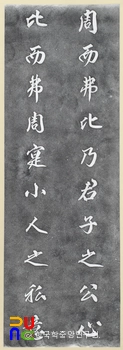 周而弗比乃君子之公心
比而弗周寔小人之私意
한국학중앙연구원